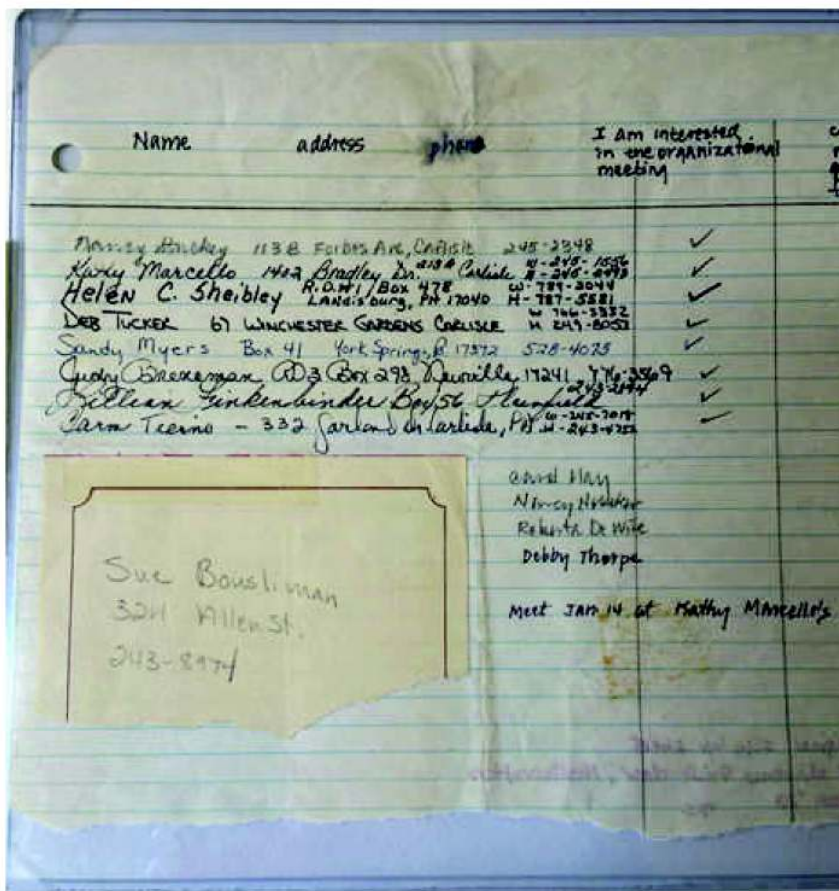 Name address phone I am interested
in the organizational
meeting
Nancy 113 E Forbes Ave, Carlisle 245-2348
Kathy Marcello 1402 Bradley Dr. Carlisle W-245-1556
Helen C. Sheibley R.D.#1/Box 478 W-789-3044
Landisburg, PA 17040 H-789-5581
W 766-3332
Deb Tucker 67 Winchester Gardens Carlisle H 249-8052
Sandy Myers Box 41 York Springs, 17372 528-4075
Judy RD3 Box 293 Newville 17241 776-3569
Lillian Finkenbinder Box 56 Plainfield
Carm Tierno - 332 Garland Dr Carlisle, PA
Carol Hay
Nancy
Roberta De Wite
Debby Thorpe
Meet Jan 14 at Kathy Marcello's
Sue Bousliman
324 Allen St.
243-8974